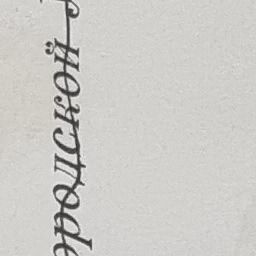 ородской